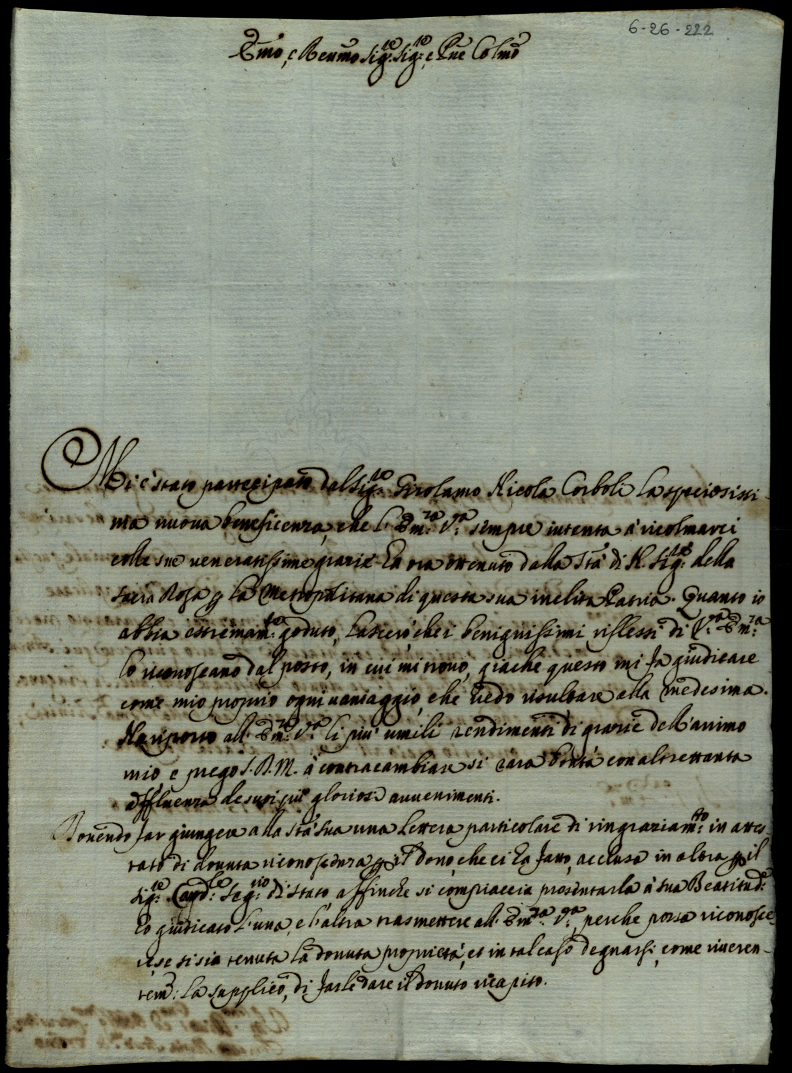 6-26-222
Emo, e Reumo Sig.re Sig.re, e Pne Colmo
Mi è stato partecipato dal Sig.re Girolamo Nicola Corboli la speciosissi-
ma nuova beneficenza, che l'Em.za V.ra sempre intenta à ricolmarci
colle sue veneratissime grazie hà ora ottenuto dalla Stà di N. Sig.re della
Sacra Rosa p la Metropolitana di questa sua inclita Patria. Quanto io
abbia estremam.te goduto, lascierò, che i benignissimi riflessi di V.ra Em.za
lo riconoscano dal posto, in cui mi trovo, giache questo mi fa giudicare
come mio proprio ogni vantaggio, che vedo risultare alla medesima.
Ne riporto all'Em.za V.ra li più umili rendimenti di grazie dell'animo
mio e prego S.D.M. à contracambiare si cara bontà con altrettanta
affluenza de suoi più gloriosi avvenimenti.
Dovendo far giungere alla Stà Sua una Lettera particolare di ringraziam.to in attes-
tato di dovuta riconoscenza p il dono, che ci hà fatto, acclusa in altra p il
Sig.re Card.le Seg.rio di Stato affinche si compiaccia presentarla à Sua Beatitud.e
hò giudicato l'una, e l'altra trasmettere all'Em.za V.ra, perche possa riconosce-
re se si sia tenuta la dovuta proprietà, et in tal caso degnarsi, come riveren-
tem.e la supplico, di farle dare il dovuto ricapito.